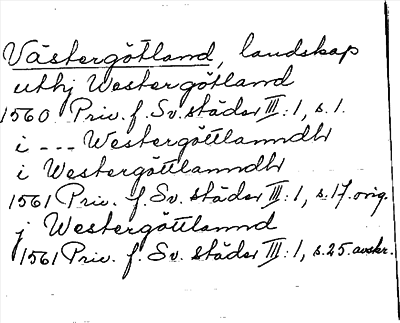 Västergötland, landskap
uthj Westergötland
1560 Priv. f. Sv. städer III:1, s. 1.
i --- Westergöttlanndh
i Westergöttlanndh
1561 Priv. f. Sv. städer III:1, s. 17. orig.
j Westergöttlannd
1561 Priv. f. Sv. städer III:1, s. 25. avskr.